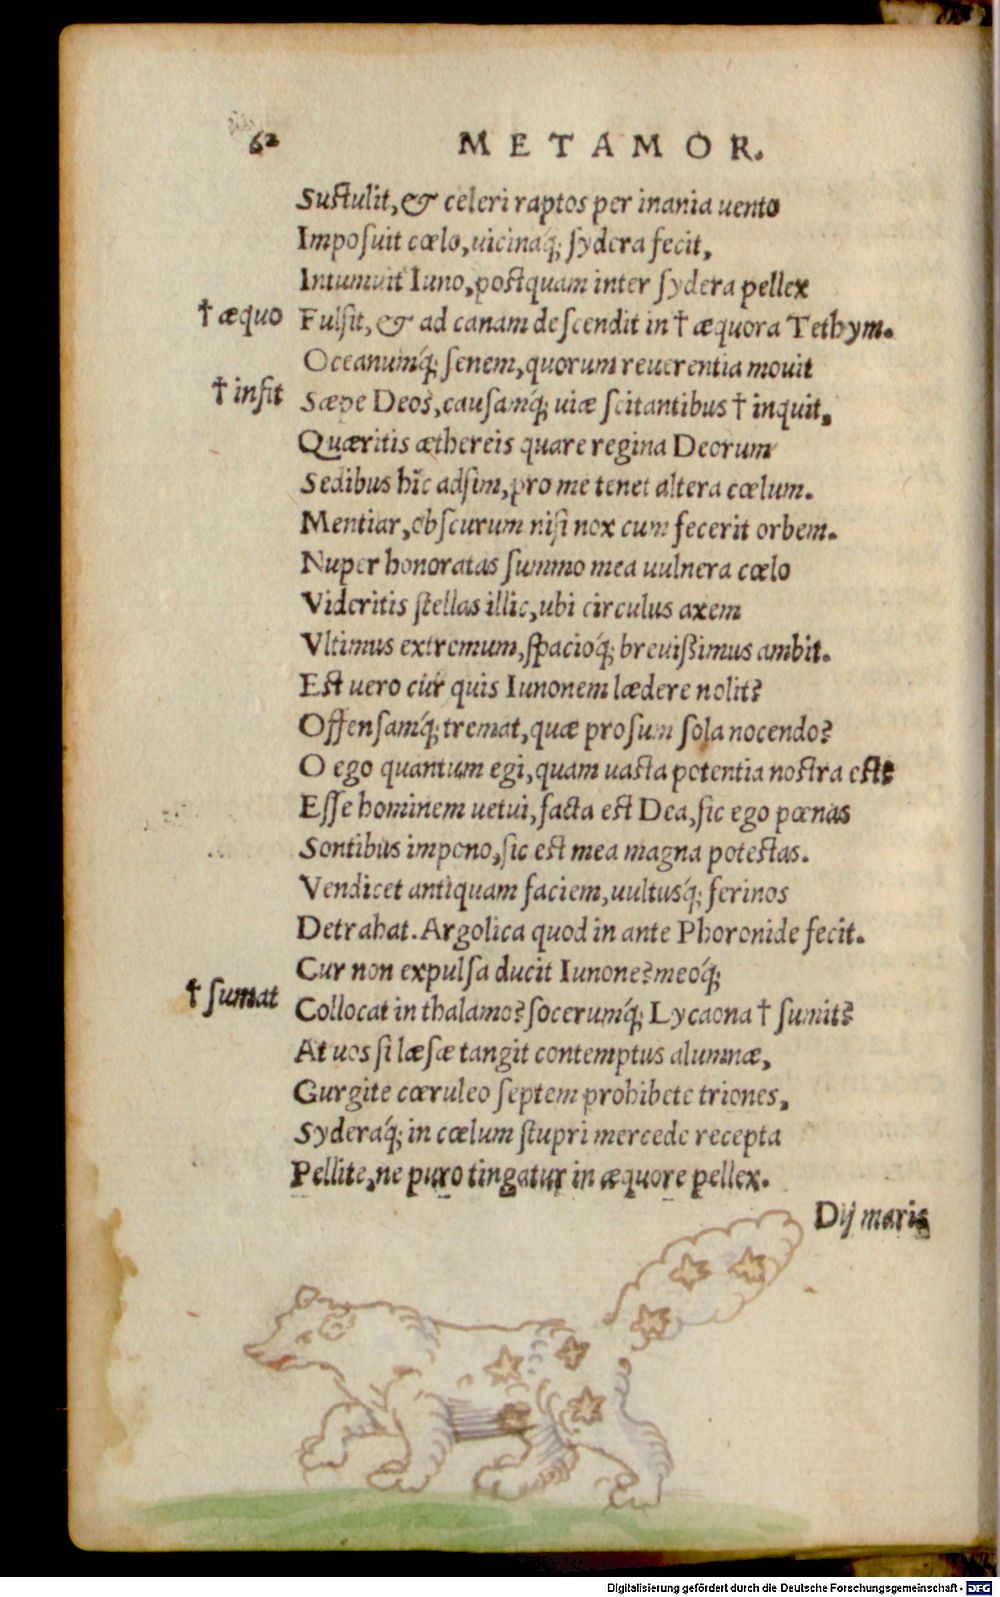 62
METAMOR.
Sustulit, & celeri raptos per inania uento
Imposuit cœlo, uicinaq́; sydera fecit,
Intumuit Iuno, postquam inter sydera pellex
† æquo Fulsit, & ad canam descendit in † æquora Tethym.
Oceanumq́; senem, quorum reuerentia mouit
† insit Sæpe Deos, causamq́; uiæ scitantibus † inquit,
Quæritis æthereis quare regina Deorum
Sedibus hîc adsim, pro me tenet altera cœlum.
Mentiar, obscurum nisi nox cum fecerit orbem.
Nuper honoratas summo mea uulnera cœlo
Videritis stellas illic, ubi circulus axem
Vltimus extremum, spacioq́; breuißimus ambit.
Est uero cur quis Iunonem lædere nolit?
Offensamq́; tremat, quæ prosum sola nocendo?
O ego quantum egi, quam uasta potentia nostra est?
Esse hominem uetui, facta est Dea, sic ego pœnas
Sontibus impono, sic est mea magna potestas.
Vendicet antiquam faciem, uultusq́; ferinos
Detrahat. Argolica quod in ante Phoronide fecit.
Cur non expulsa ducit Iunone? meoq́;
† sumat Collocat in thalamo? socerumq́; Lycaona † sumit?
At uos si læsæ tangit contemptus alumnæ,
Gurgite cœruleo septem prohibete triones,
Syderaq́; in cœlum stupri mercede recepta
Pellite, ne puro tingatur in æquore pellex.
Dij maris
Digitalisierung gefördert durch die Deutsche Forschungsgemeinschaft - DFG